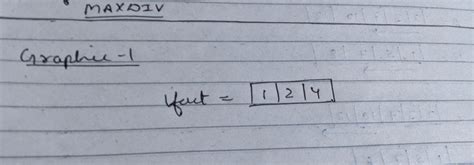 MAXDIV
Graphic-1
ifact = [1|2|4]